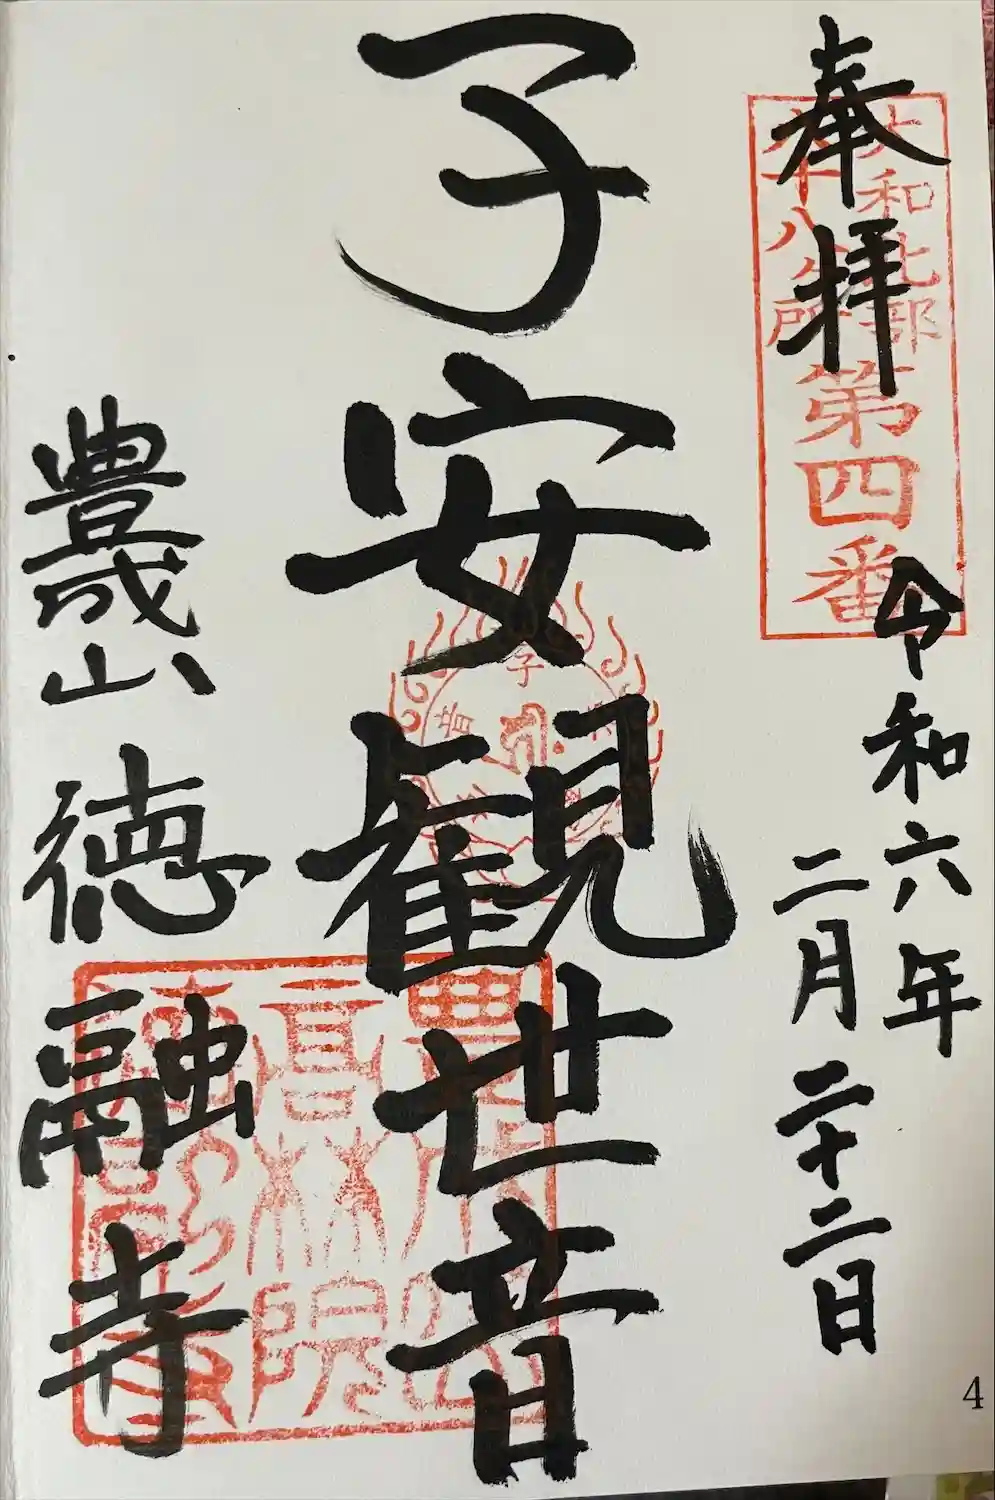 奉拝
大和北部
八十八ヶ所
第四番
令和六年
二月二十二日
子安観世音
豊晟山 徳融寺
高林院
4